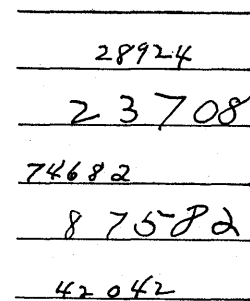 28924
23708
74682
87582
42042